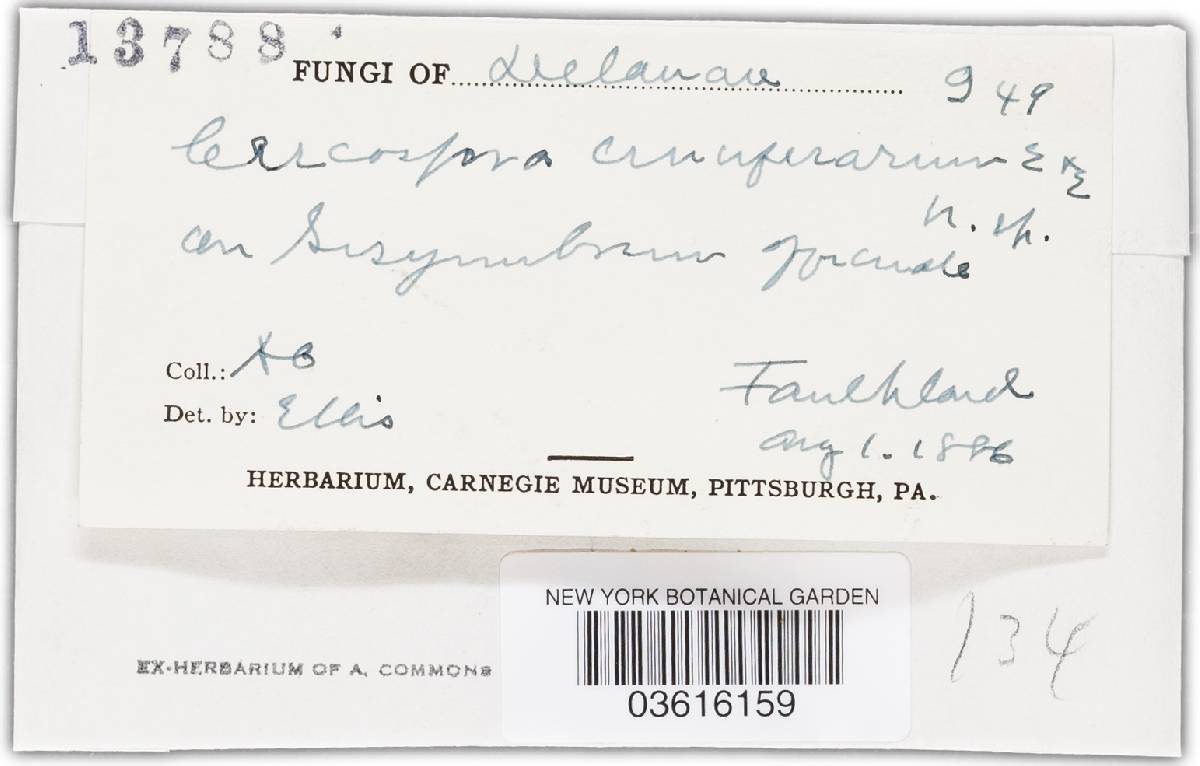 13788
FUNGI OF Delaware 949
Cercospora cruciferarum E & E
n. sp.
on Sisymbrium
Coll.: AC
Faulkland
Det. by: Ellis
Aug 1. 1886
HERBARIUM, CARNEGIE MUSEUM, PITTSBURGH, PA.
NEW YORK BOTANICAL GARDEN
134
EX-HERBARIUM OF A. COMMONS
03616159